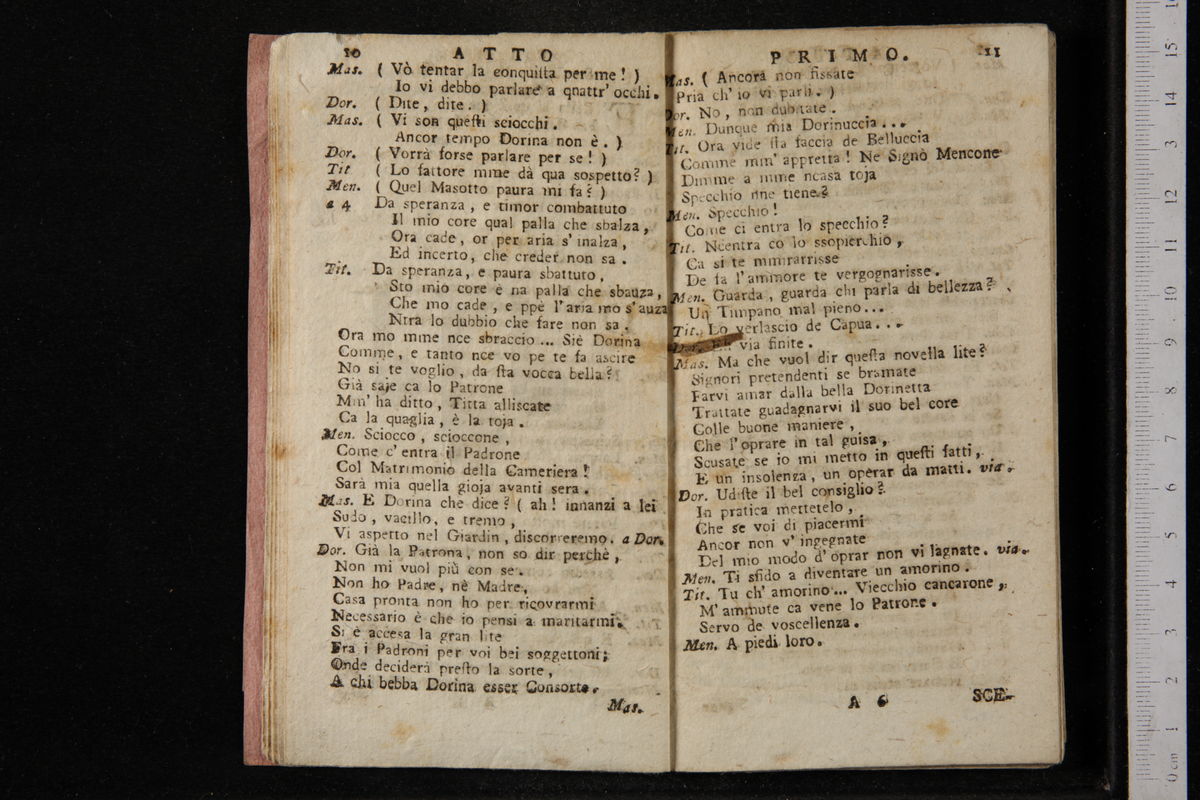 10 ATTO
Mas. ( Vò tentar la conquista per me ! )
Io vi debbo parlare a quattr' occhi.
Dor. ( Dite, dite. )
Mas. ( Vi son questi sciocchi.
Ancor tempo Dorina non è. )
Dor. ( Vorrà forse parlare per se ! )
Tit ( Lo fattore mme dà qua sospetto? )
Men. ( Quel Masotto paura mi fa? )
a 4 Da speranza, e timor combattuto
Il mio core qual palla che sbalza,
Ora cade, or per aria s' inalza,
Ed incerto, che creder non sa.
Tit. Da speranza, e paura sbattuto,
Sto mio core è na palla che sbauza,
Che mo cade, e ppè l'aria mo s'auza
Ntra lo dubbio che fare non sa.
Ora mo mme nce sbraccio ... Siè Dorina
Comme, e tanto nce vo pe te fa ascire
No si te voglio, da sta vocca bella?
Già saje ca lo Patrone
Mm' ha ditto, Titta alliscate
Ca la quaglia, è la toja.
Men. Sciocco, scioccone,
Come c' entra il Padrone
Col Matrimonio della Cameriera!
Sarà mia quella gioja avanti sera.
Mas. E Dorina che dice? ( ah! innanzi a lei
Sudo, vacillo, e tremo,
Vi aspetto nel Giardin, discorreremo. a Dor.
Dor. Già la Patrona, non so dir perchè,
Non mi vuol più con se.
Non ho Padre, nè Madre,
Casa pronta non ho per ricovrarmi
Necessario è che io pensi a maritarmi.
Si è accesa la gran lite
Fra i Padroni per voi bei soggettoni;
Onde deciderà presto la sorte,
A chi bebba Dorina esser Consorte.
Mas.
PRIMO. 11
Mas. ( Ancora non fissate
Pria ch' io vi parli. )
Dor. No, non dubitate.
Men. Dunque mia Dorinuccia...
Tit. Ora vide sta faccia de Belluccia
Comme mm' appretta! Ne Signò Mencone
Dimme a mme ncasa toja
Specchio nne tiene?
Men. Specchio!
Come ci entra lo specchio?
Tit. Ncentra co lo ssopierchio,
Ca si te mmirarrisse
De fa l'ammore te vergognarisse.
Men. Guarda, guarda chi parla di bellezza?
Un Timpano mal pieno...
Tit. Lo verlascio de Capua...
Dor. Eh via finite.
Mas. Ma che vuol dir questa novella lite?
Signori pretendenti se bramate
Farvi amar dalla bella Dorinetta
Trattate guadagnarvi il suo bel core
Colle buone maniere,
Che l'oprare in tal guisa,
Scusate se io mi metto in questi fatti,
E un insolenza, un operar da matti. via.
Dor. Udiste il bel consiglio?
In pratica mettetelo,
Che se voi di piacermi
Ancor non v' ingegnate
Del mio modo d' oprar non vi lagnate. via.
Men. Ti sfido a diventare un amorino.
Tit. Tu ch' amorino... Viecchio cancarone,
M' ammute ca vene lo Patrone.
Servo de voscellenza.
Men. A piedi loro.
A 6 SCE-
0 cm 1 2 3 4 5 6 7 8 9 10 11 12 13 14 15